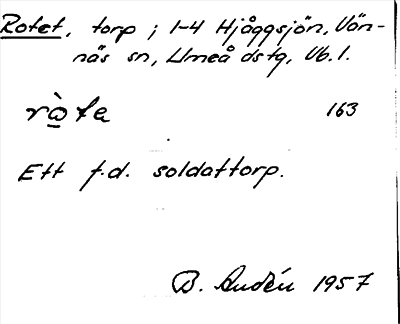 Rotet, torp; 1-4 Hjåggsjön, Vän-
näs sn, Umeå dstg, Vb. l.
rò̲te 163
Ett f.d. soldattorp.
B. Audén 1957